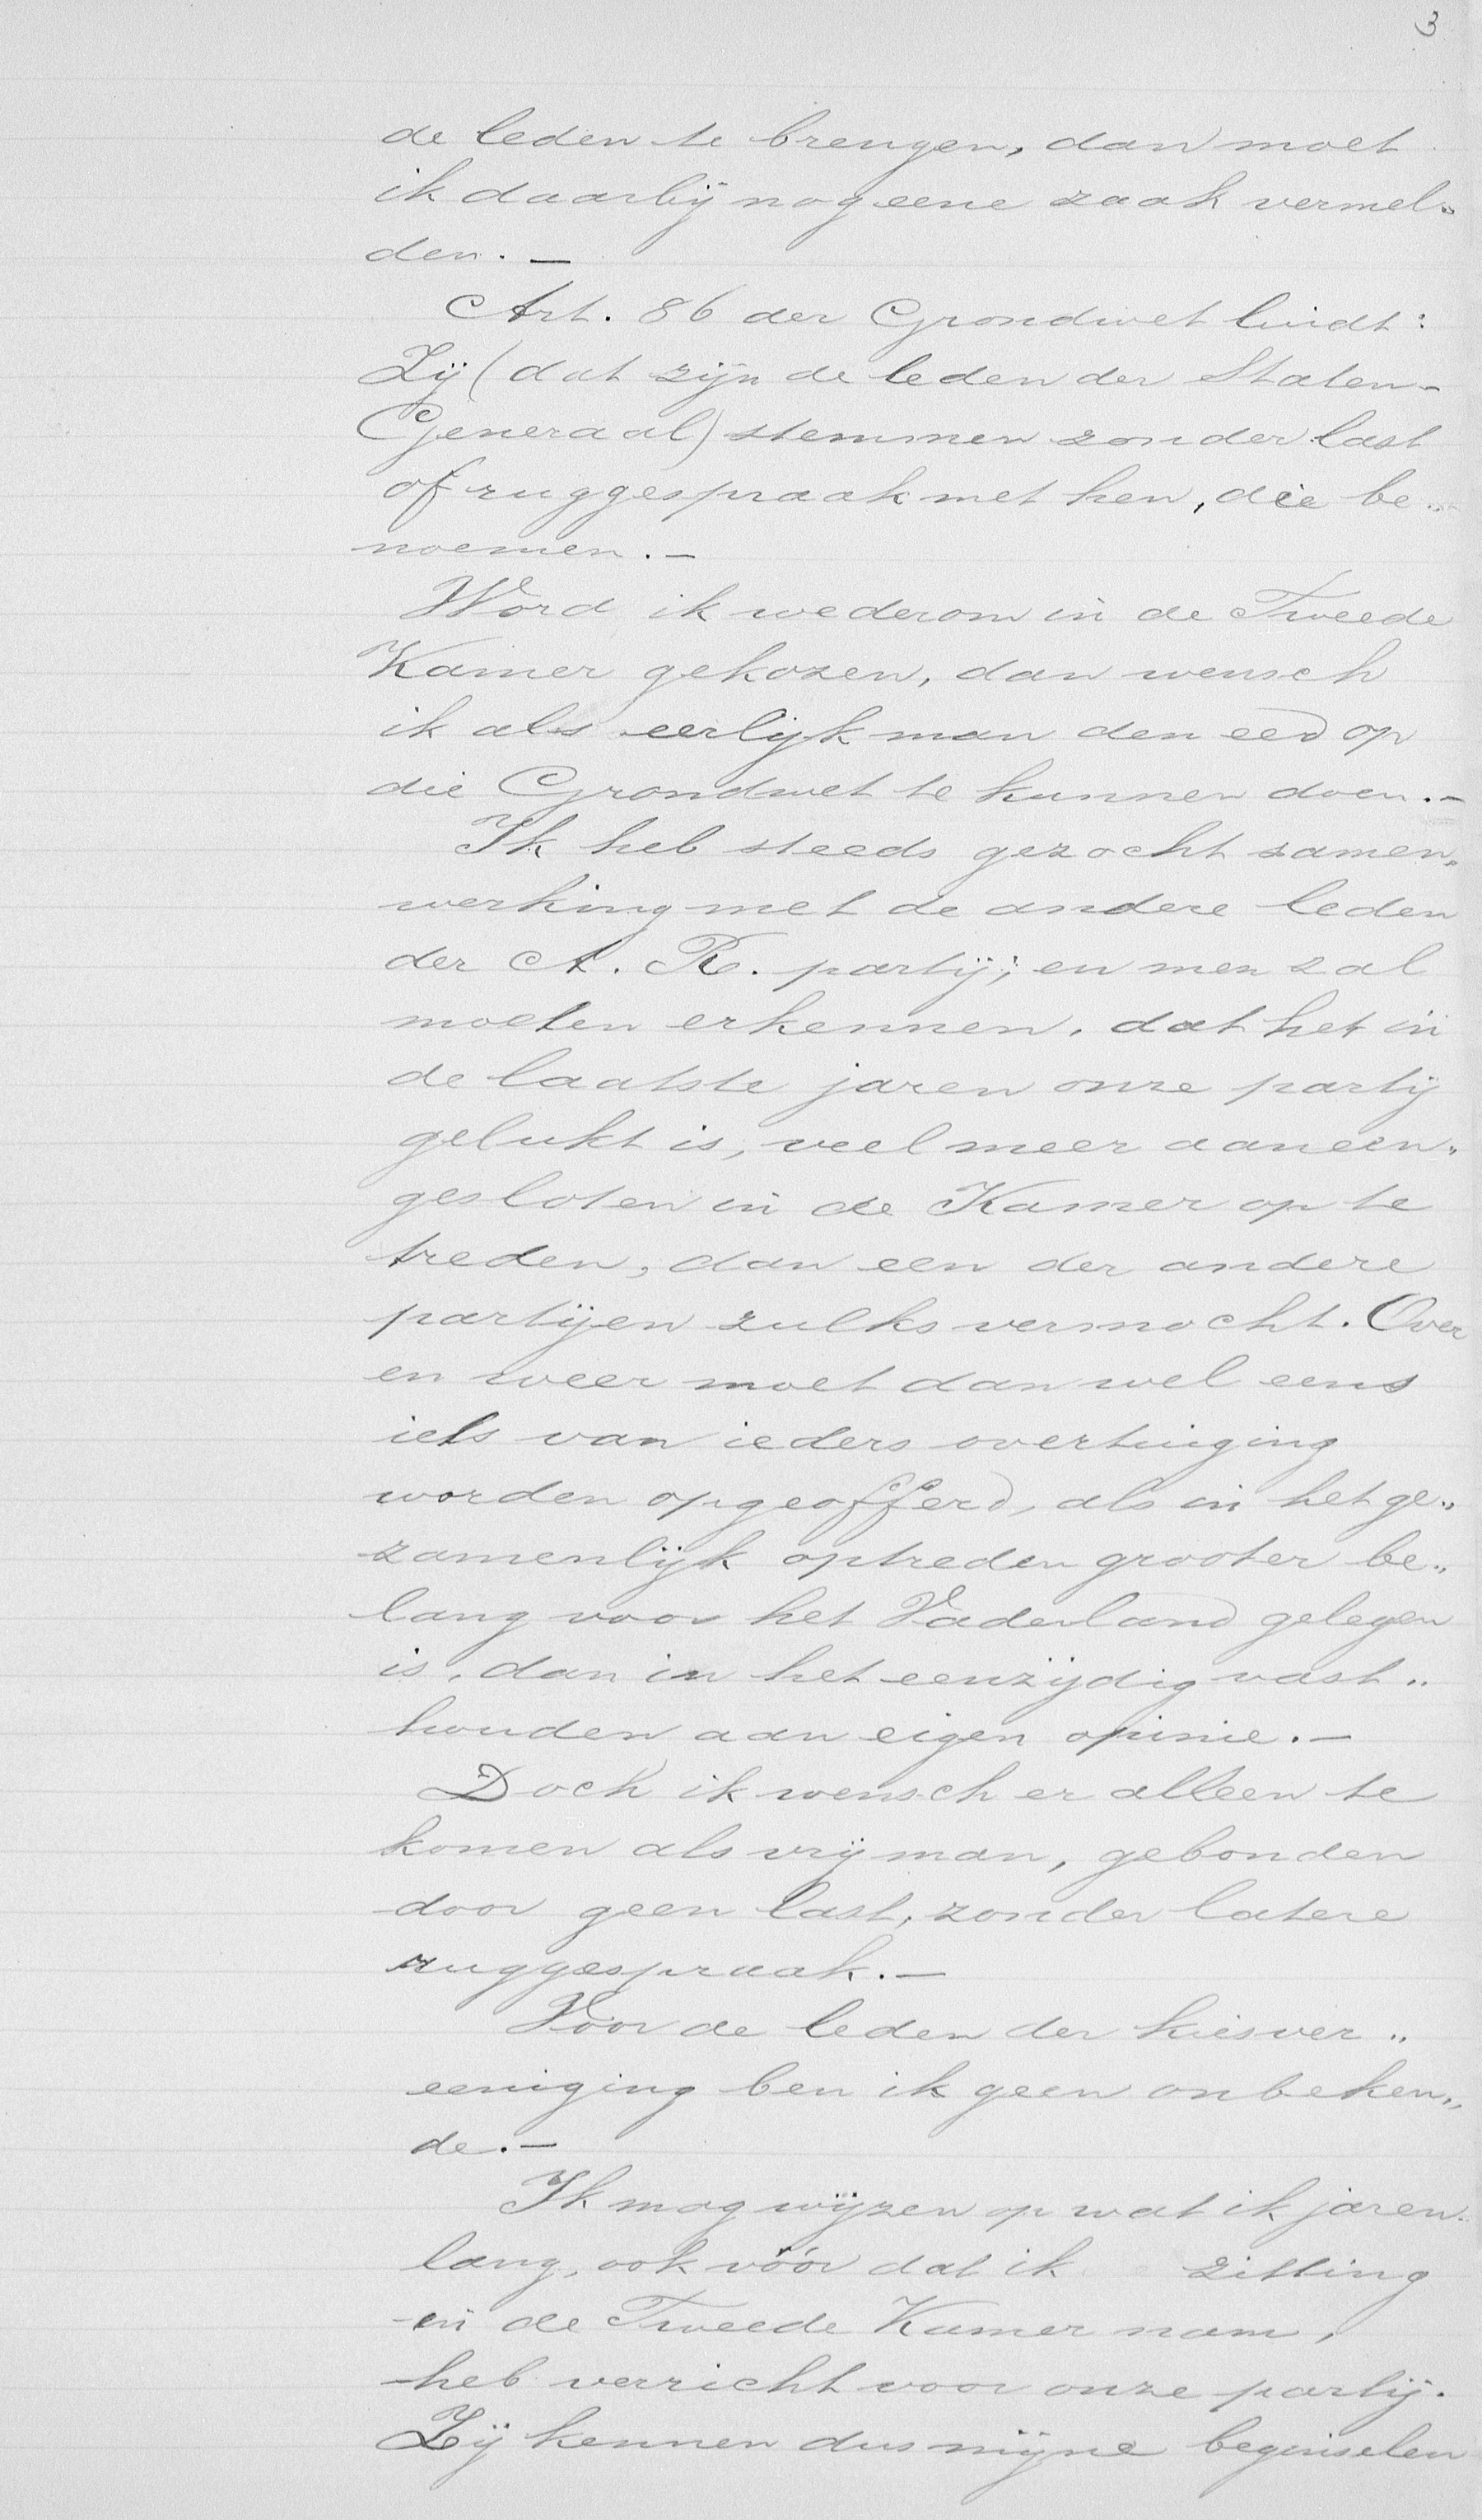 3
de leden te brengen, dan moet
ik daarbij nog eene zaak vermel„
den. —
Art. 86 der Grondwet luidt:
Zij (dat zijn de leden der Staten-
Generaal) stemmen zonder last
of ruggespraak met hen, die be„
noemen. —
Word ik wederom in de Tweede
Kamer gekozen, dan wensch
ik als eerlijk man den eed op
die Grondwet te kunnen doen. —
Ik heb steeds gezocht samen„
werking met de andere leden
der A. R. partij; en men zal
moeten erkennen, dat het in
de laatste jaren onze partij
gelukt is, veel meer aaneen„
gesloten in de Kamer op te
treden, dan een der andere
partijen zulks vermocht. Over
en weer moet dan wel eens
iets van ieders overtuiging
worden opgeofferd, als in het ge„
zamenlijk optreden grooter be„
lang voor het Vaderland gelegen
is, dan in het eenzijdig vast„
houden aan eigen opinie. —
Doch ik wensch er alleen te
komen als vrij man, gebonden
door geen last, zonder latere
ruggespraak. —
Voor de leden der kiesver„
eeniging ben ik geen onbeken„
de. —
Ik mag wijzen op wat ik jaren-
lang, ook vóór dat ik zitting
in de Tweede Kamer nam,
heb verricht voor onze partij.
Zij kennen dus mijne beginselen